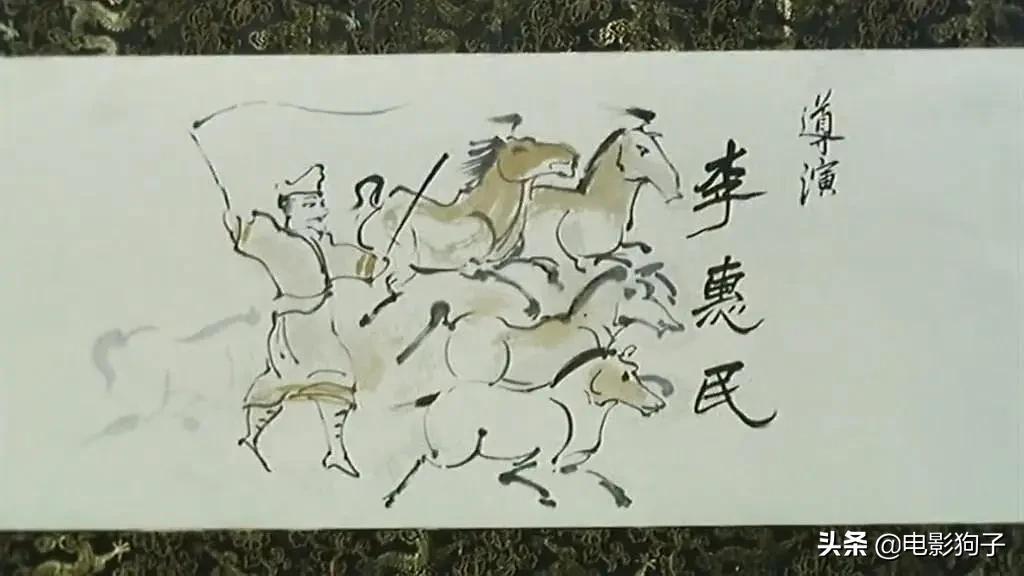 導演
李惠民
头条 @电影狗子